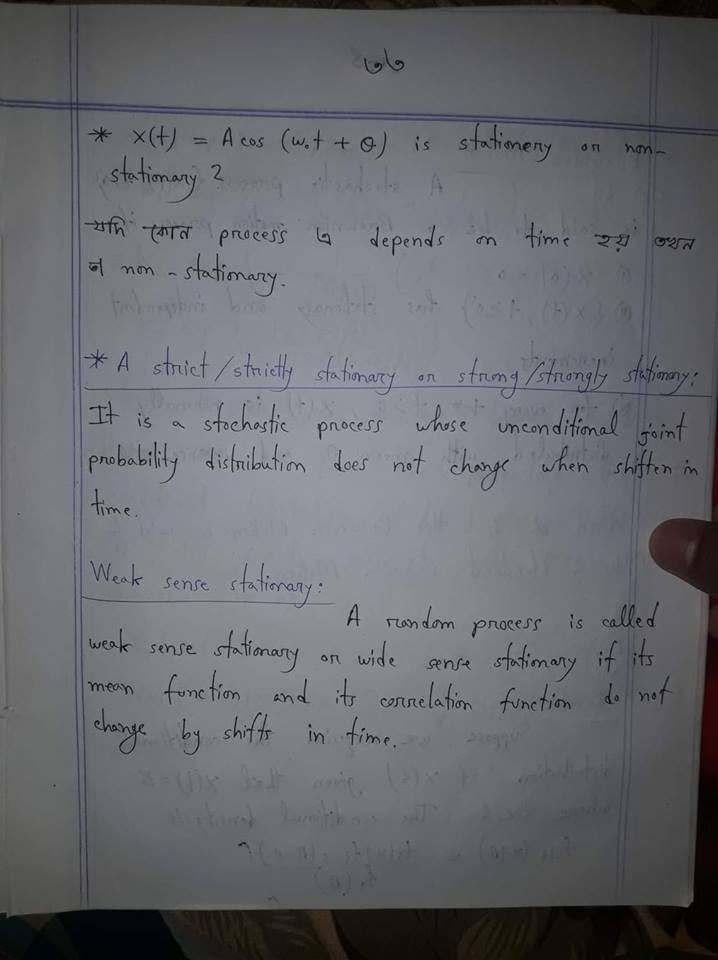 ৩৬
* X(t) = A cos (ω₀t + θ) is stationery or non-
stationary ?
যদি কোন process ও depends on time হয় তখন
তা non - stationary.
* A strict/strictly stationary or strong/strongly stationary:
It is a stochastic process whose unconditional joint
probability distribution does not change when shiften in
time.
Weak sense stationary:
A random process is called
weak sense stationary or wide sense stationary if its
mean function and its correlation function do not
change by shifts in time.